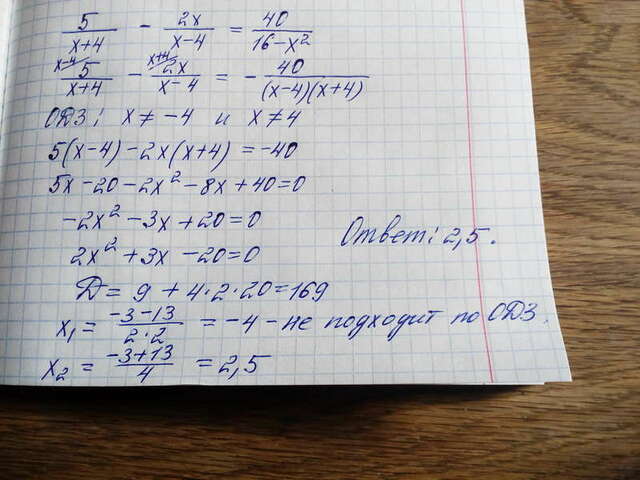 5/(x+4) - 2x/(x-4) = 40/(16-x²)
x-4 5/(x+4) - x+4 2x/(x-4) = - 40/((x-4)(x+4))
ОДЗ: x ≠ -4 и x ≠ 4
5(x-4) - 2x(x+4) = -40
5x - 20 - 2x² - 8x + 40 = 0
-2x² - 3x + 20 = 0
2x² + 3x - 20 = 0
Ответ: 2,5.
Д = 9 + 4·2·20 = 169
x₁ = (-3-13)/(2·2) = -4 - не подходит по ОДЗ.
x₂ = (-3+13)/4 = 2,5